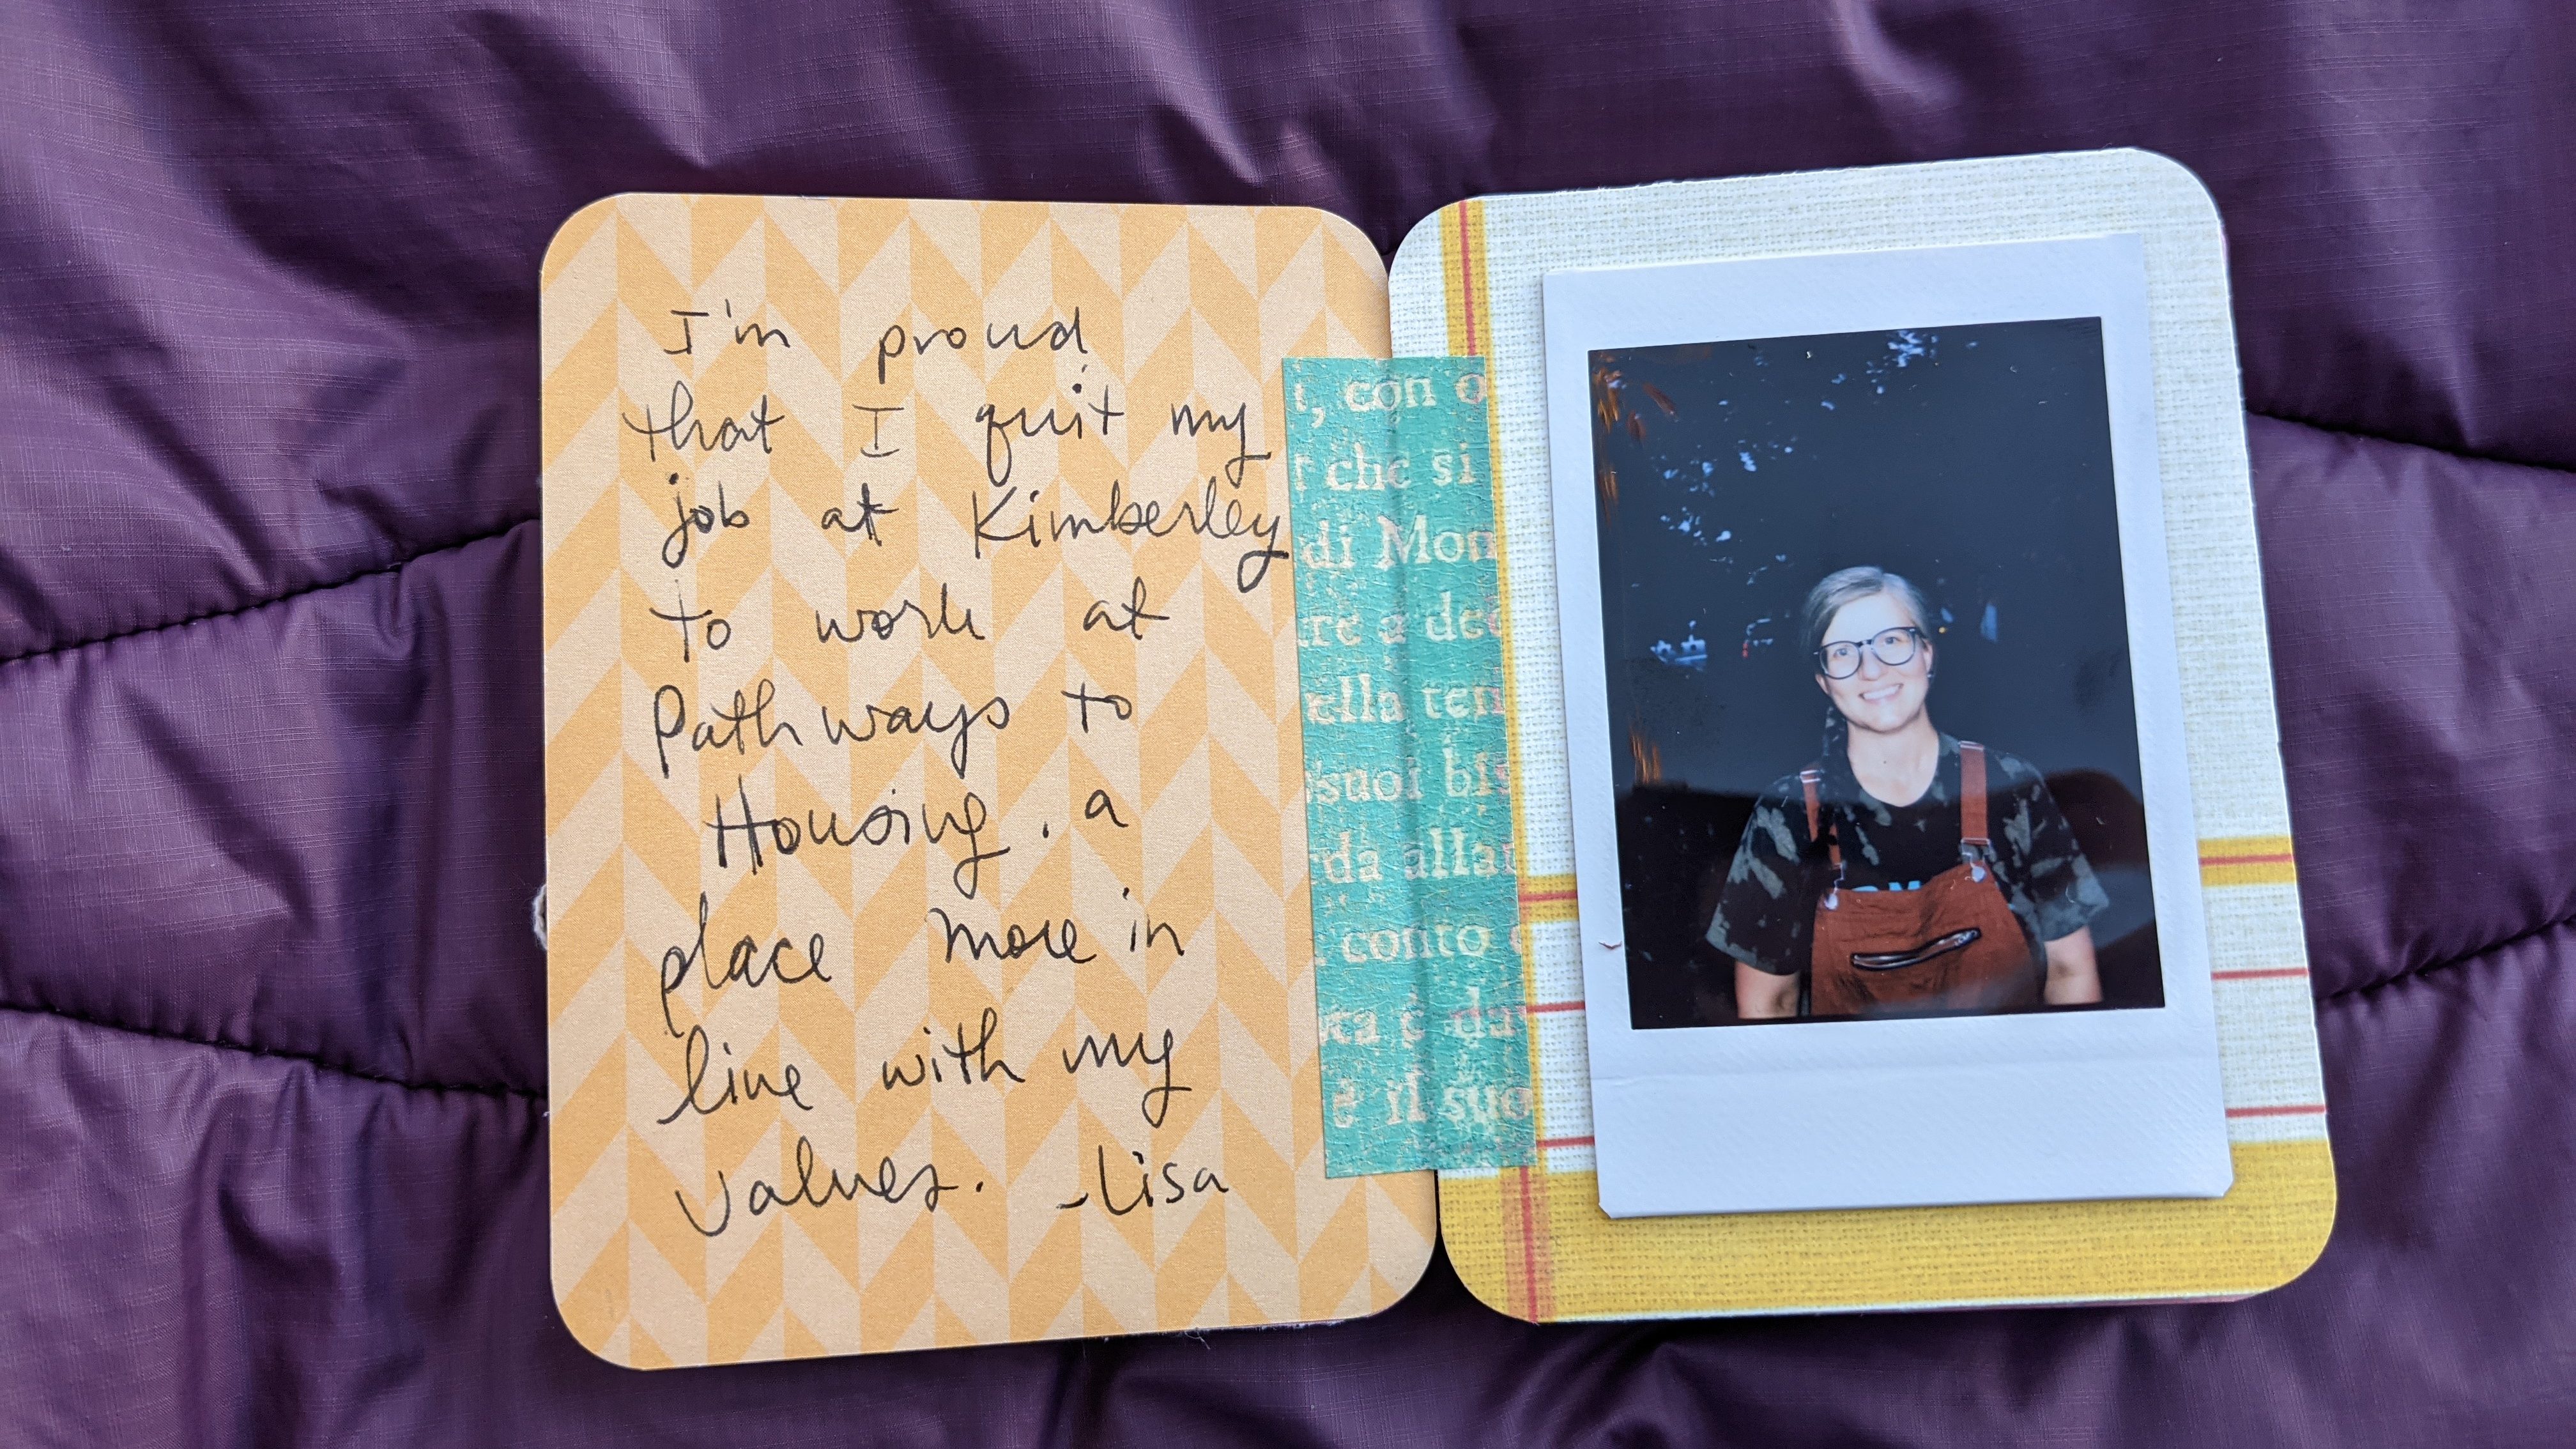 I'm proud
that I quit my
job at Kimberley
to work at
Pathways to
Housing, a
place more in
line with my
values. -Lisa
, con o
r che si
di Mon
re a de
ella ten
suoi bi
rda alla
conto
ta è da
e il suo